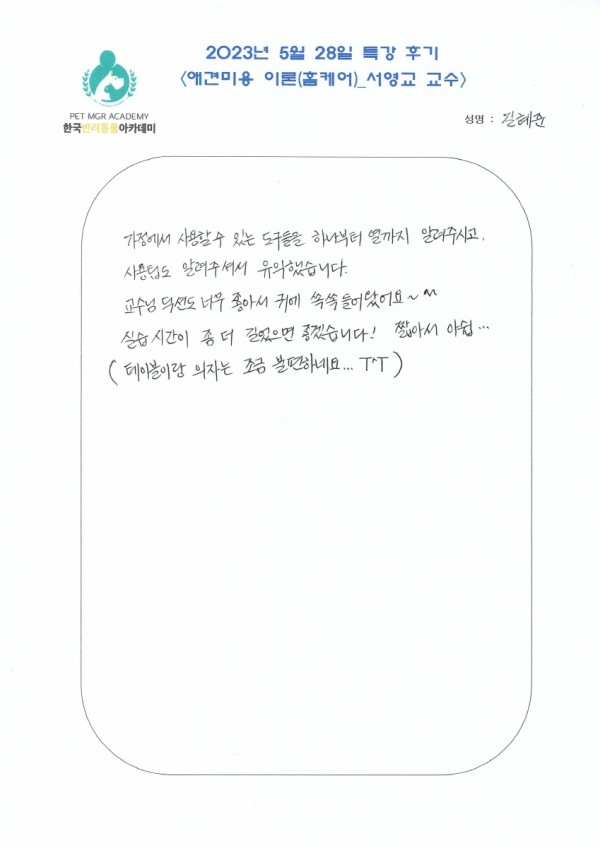 2023년 5월 28일 특강 후기
<애견미용 이론(홈케어)_서영교 교수>
PET MGR ACADEMY
한국반려동물아카데미
성명 : 길혜준
가정에서 사용할 수 있는 도구들을 하나부터 열까지 알려주시고,
사용팁도 알려주셔서 유익했습니다.
교수님 딕션도 너무 좋아서 귀에 쏙쏙 들어왔어요~^^
실습 시간이 좀 더 길었으면 좋겠습니다! 짧아서 아쉽…
(테이블이랑 의자는 조금 불편하네요… T^T)